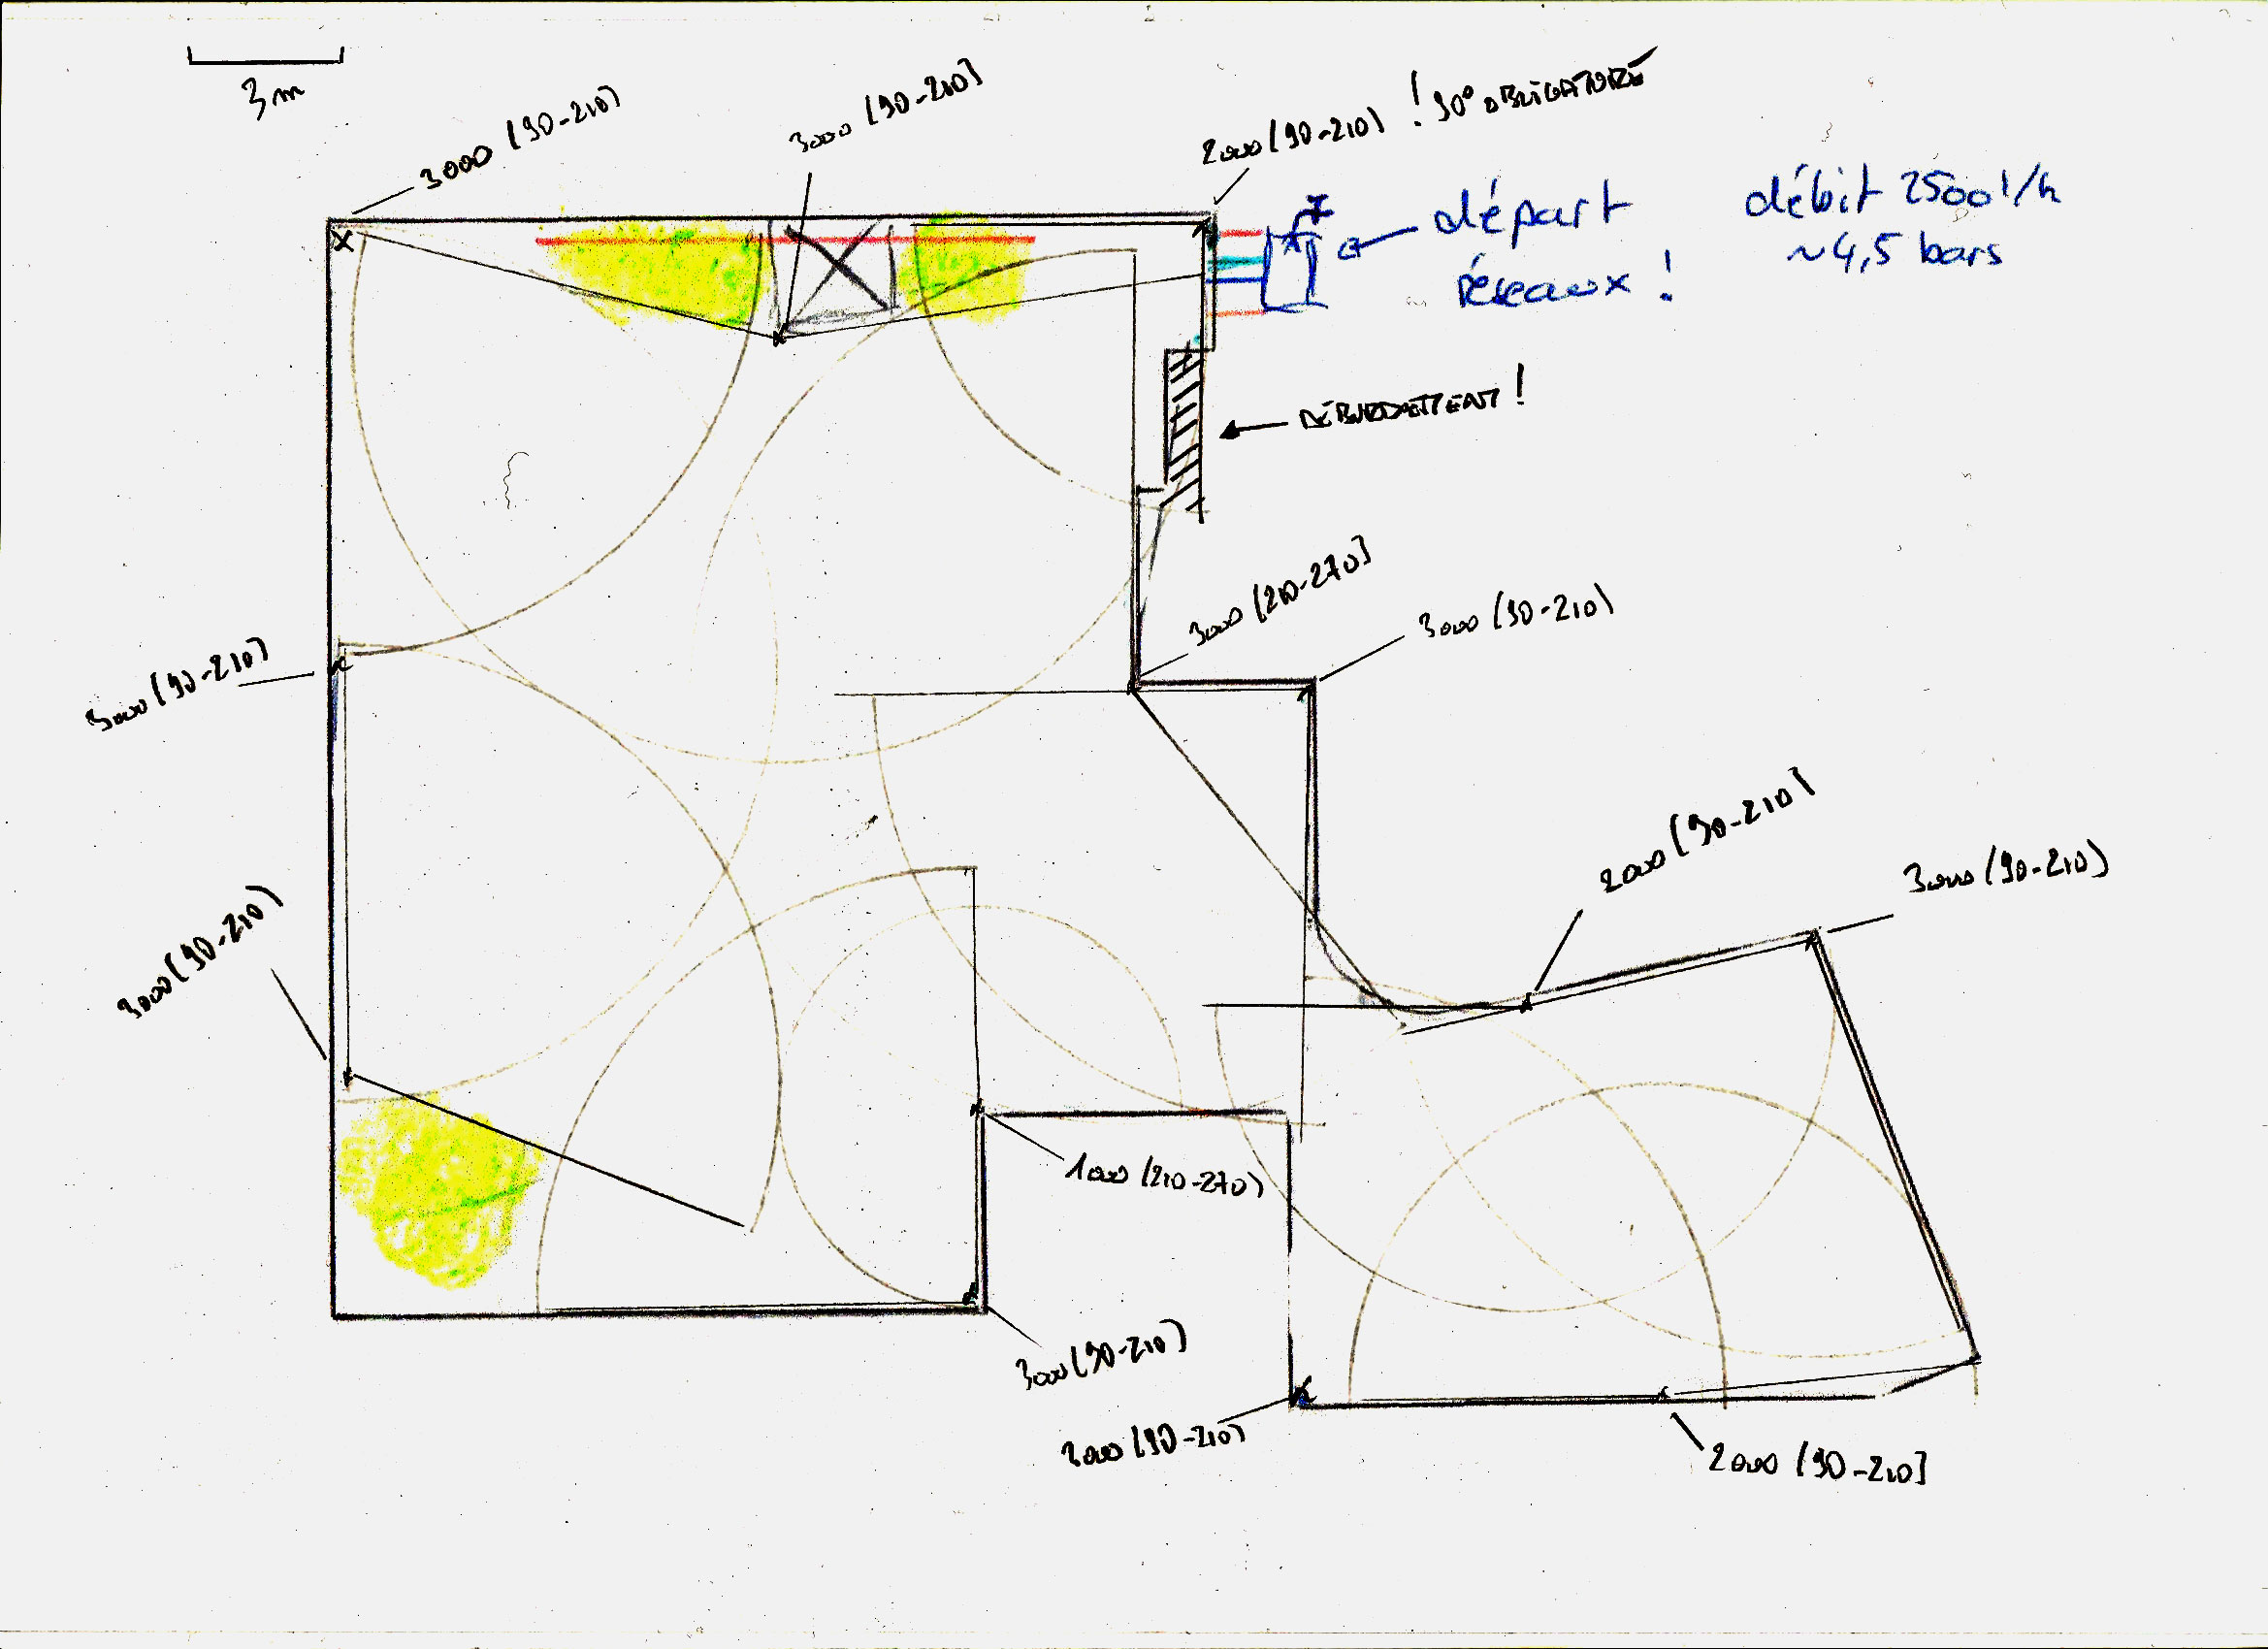 3m
3000 (90-210)
3000 (90-210)
2000 (90-210) ! 90° OBLIGATOIRE
départ
réseaux !
débit 2500 l/h
~4,5 bars
DÉBORDEMENT !
3000 (210-270)
3000 (90-210)
3000 (90-210)
2000 (90-210)
3000 (90-210)
3000 (90-210)
1000 (210-270)
3000 (90-210)
3000 (90-210)
2000 (90-210)